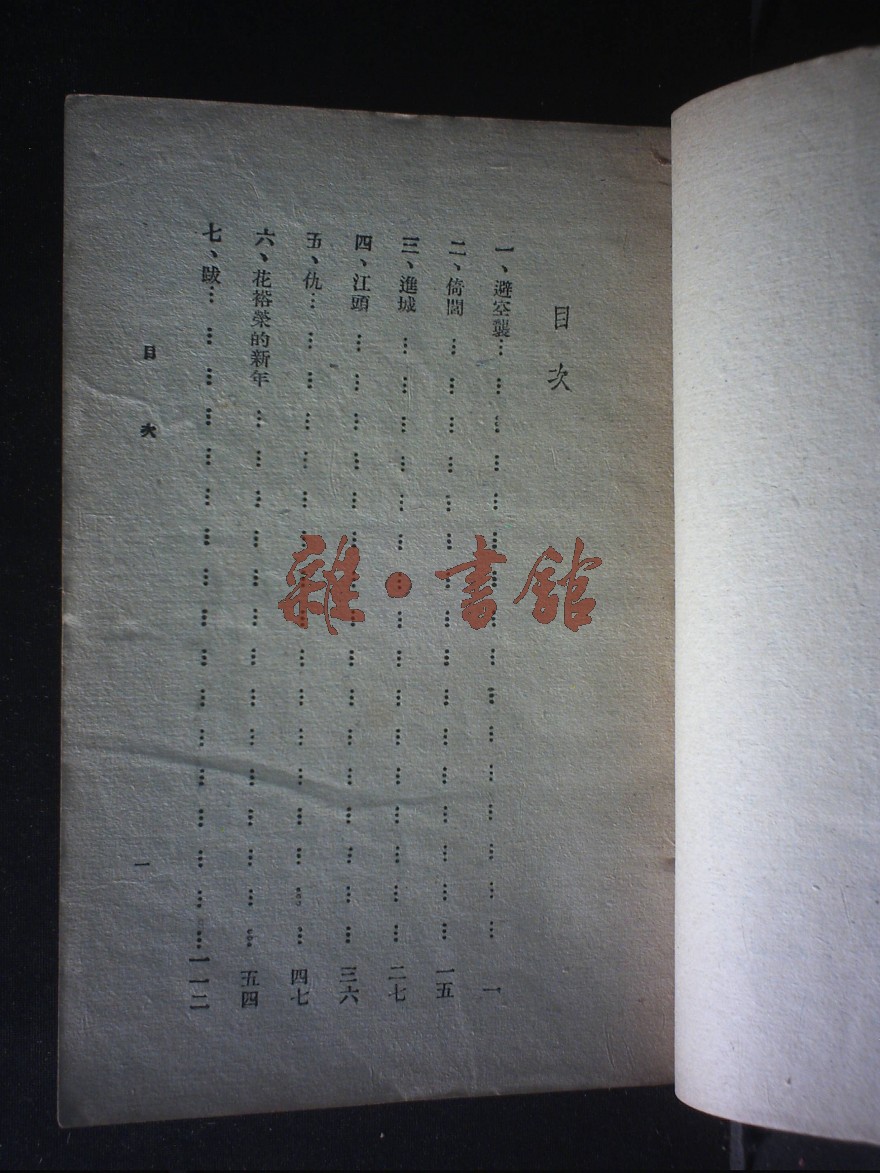 目次
一、避空襲…………………………………………一
二、倚閭…………………………………………一五
三、進城…………………………………………二七
四、江頭…………………………………………三六
五、仇…………………………………………四七
六、花裕榮的新年…………………………………………五四
七、跋…………………………………………一一二
目次
一
雜·書館